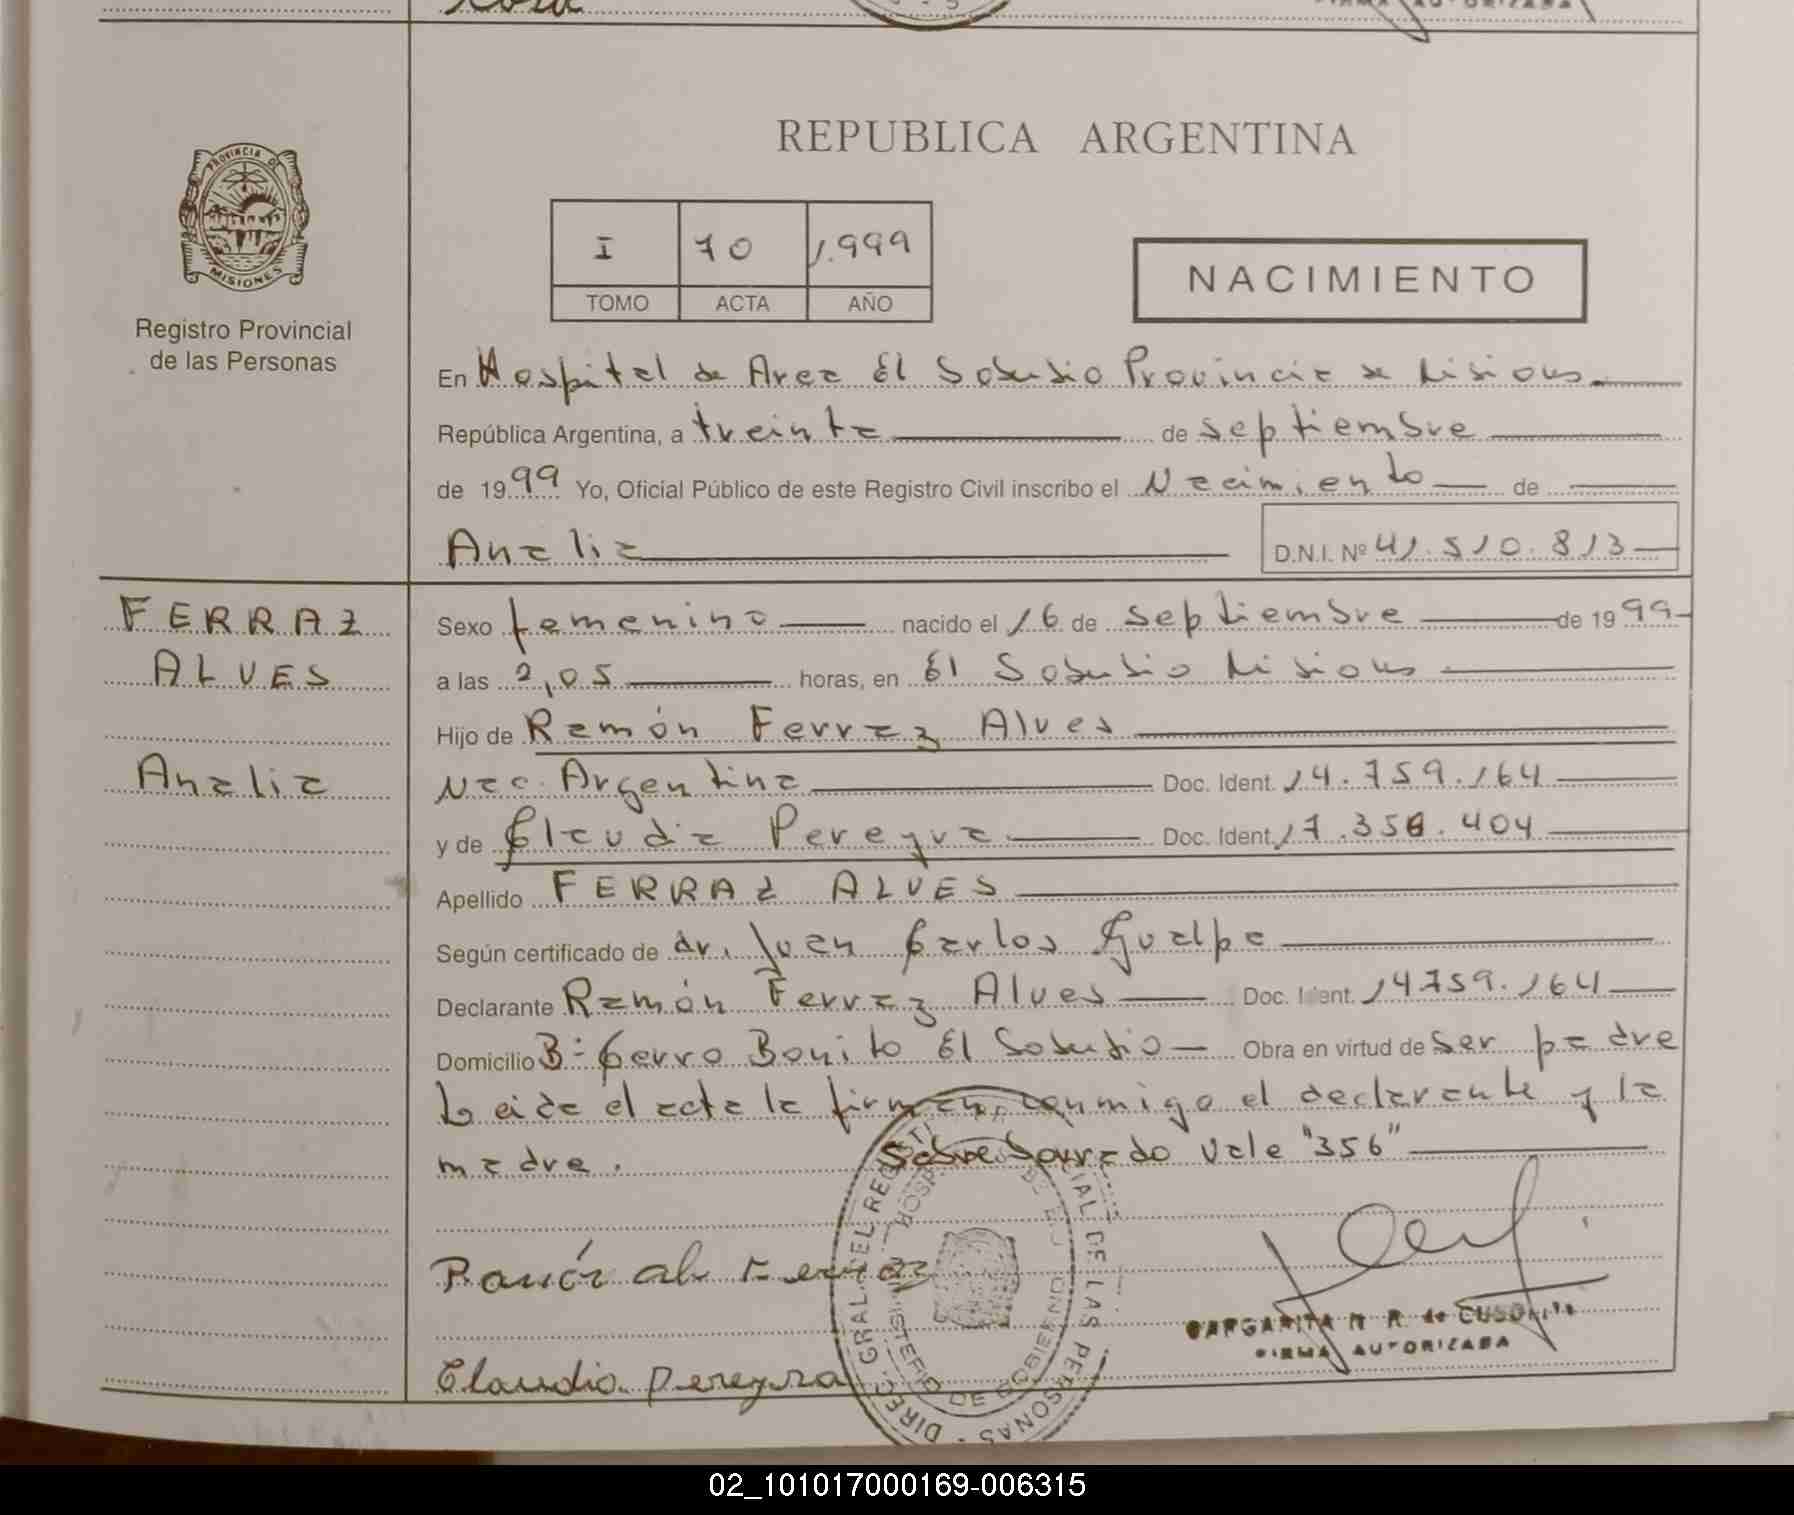 REPUBLICA ARGENTINA
PROVINCIA DE
MISIONES
Registro Provincial
de las Personas
I 70 1.999
TOMO ACTA AÑO
NACIMIENTO
En Hospital de Area El Soberbio Provincia de Misiones.
República Argentina, a treinta de septiembre
de 1999 Yo, Oficial Público de este Registro Civil inscribo el Nacimiento de
Analia D.N.I. Nº 41.510.813
FERRAZ
ALVES
Analia
Sexo femenino nacido el 16 de septiembre de 1999
a las 2,05 horas, en El Soberbio Misiones
Hijo de Ramón Ferraz Alves
Nac. Argentina Doc. Ident. 14.759.164
y de Claudia Pereyra Doc. Ident. 17.356.404
Apellido FERRAZ ALVES
Según certificado de dr. Juan Carlos Gualpa
Declarante Ramón Ferraz Alves Doc. Ident. 14.759.164
Domicilio Bº Cerro Bonito El Soberbio Obra en virtud de ser padre
Leida el acta la firman, conmigo el declarante y la
madre. Sobre borrado vale "356"
Ramón al Ferraz
Claudia Pereyra
DIREC. GRAL. DEL REGISTRO PROVINCIAL DE LAS PERSONAS
MINISTERIO DE GOBIERNO
MARGARITA N R de
FIRMA AUTORIZADA
02_101017000169-006315